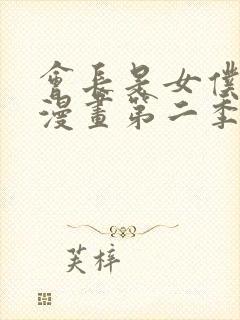 會長是女僕
漫畫第二季
芙梓